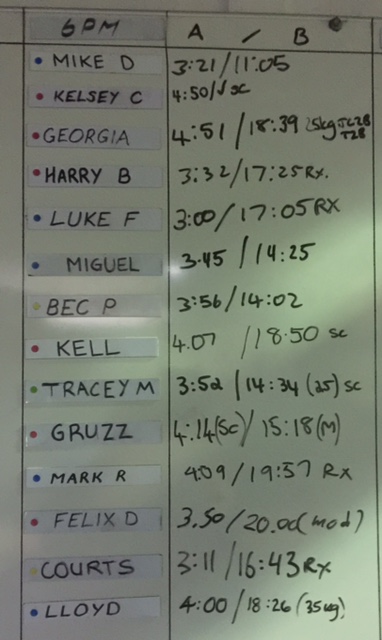 6PM A / B
MIKE D 3:21/11:05
KELSEY C 4:50/√ SC
GEORGIA 4:51 / 18:39 25kg
HARRY B 3:32/17:25 Rx.
LUKE F 3:00/17:05 RX
MIGUEL 3.45 / 14:25
BEC P 3:56/14:02
KELL 4.07 /18.50 SC
TRACEY M 3:52 /14:34 (25) SC
GRUZZ 4:14(SC)/ 15:18(M)
MARK R 4:09 / 19:57 Rx
FELIX D 3.50/20.00(mod)
COURTS 3:11/16:43 RX
LLOYD 4:00/18:26 (35kg)